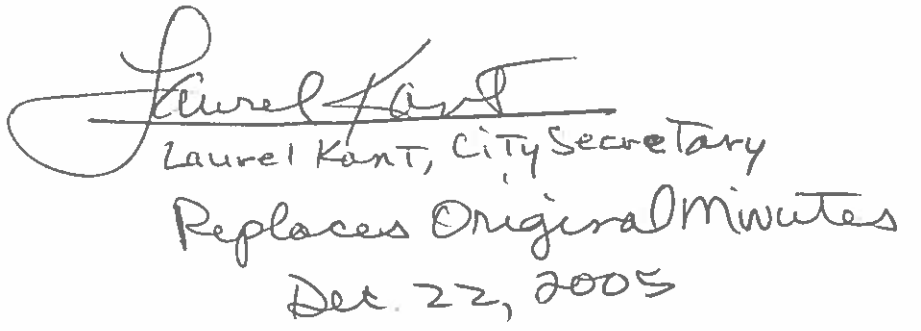 Laurel Kant
Laurel Kant, City Secretary
Replaces Original Minutes
Dec. 22, 2005